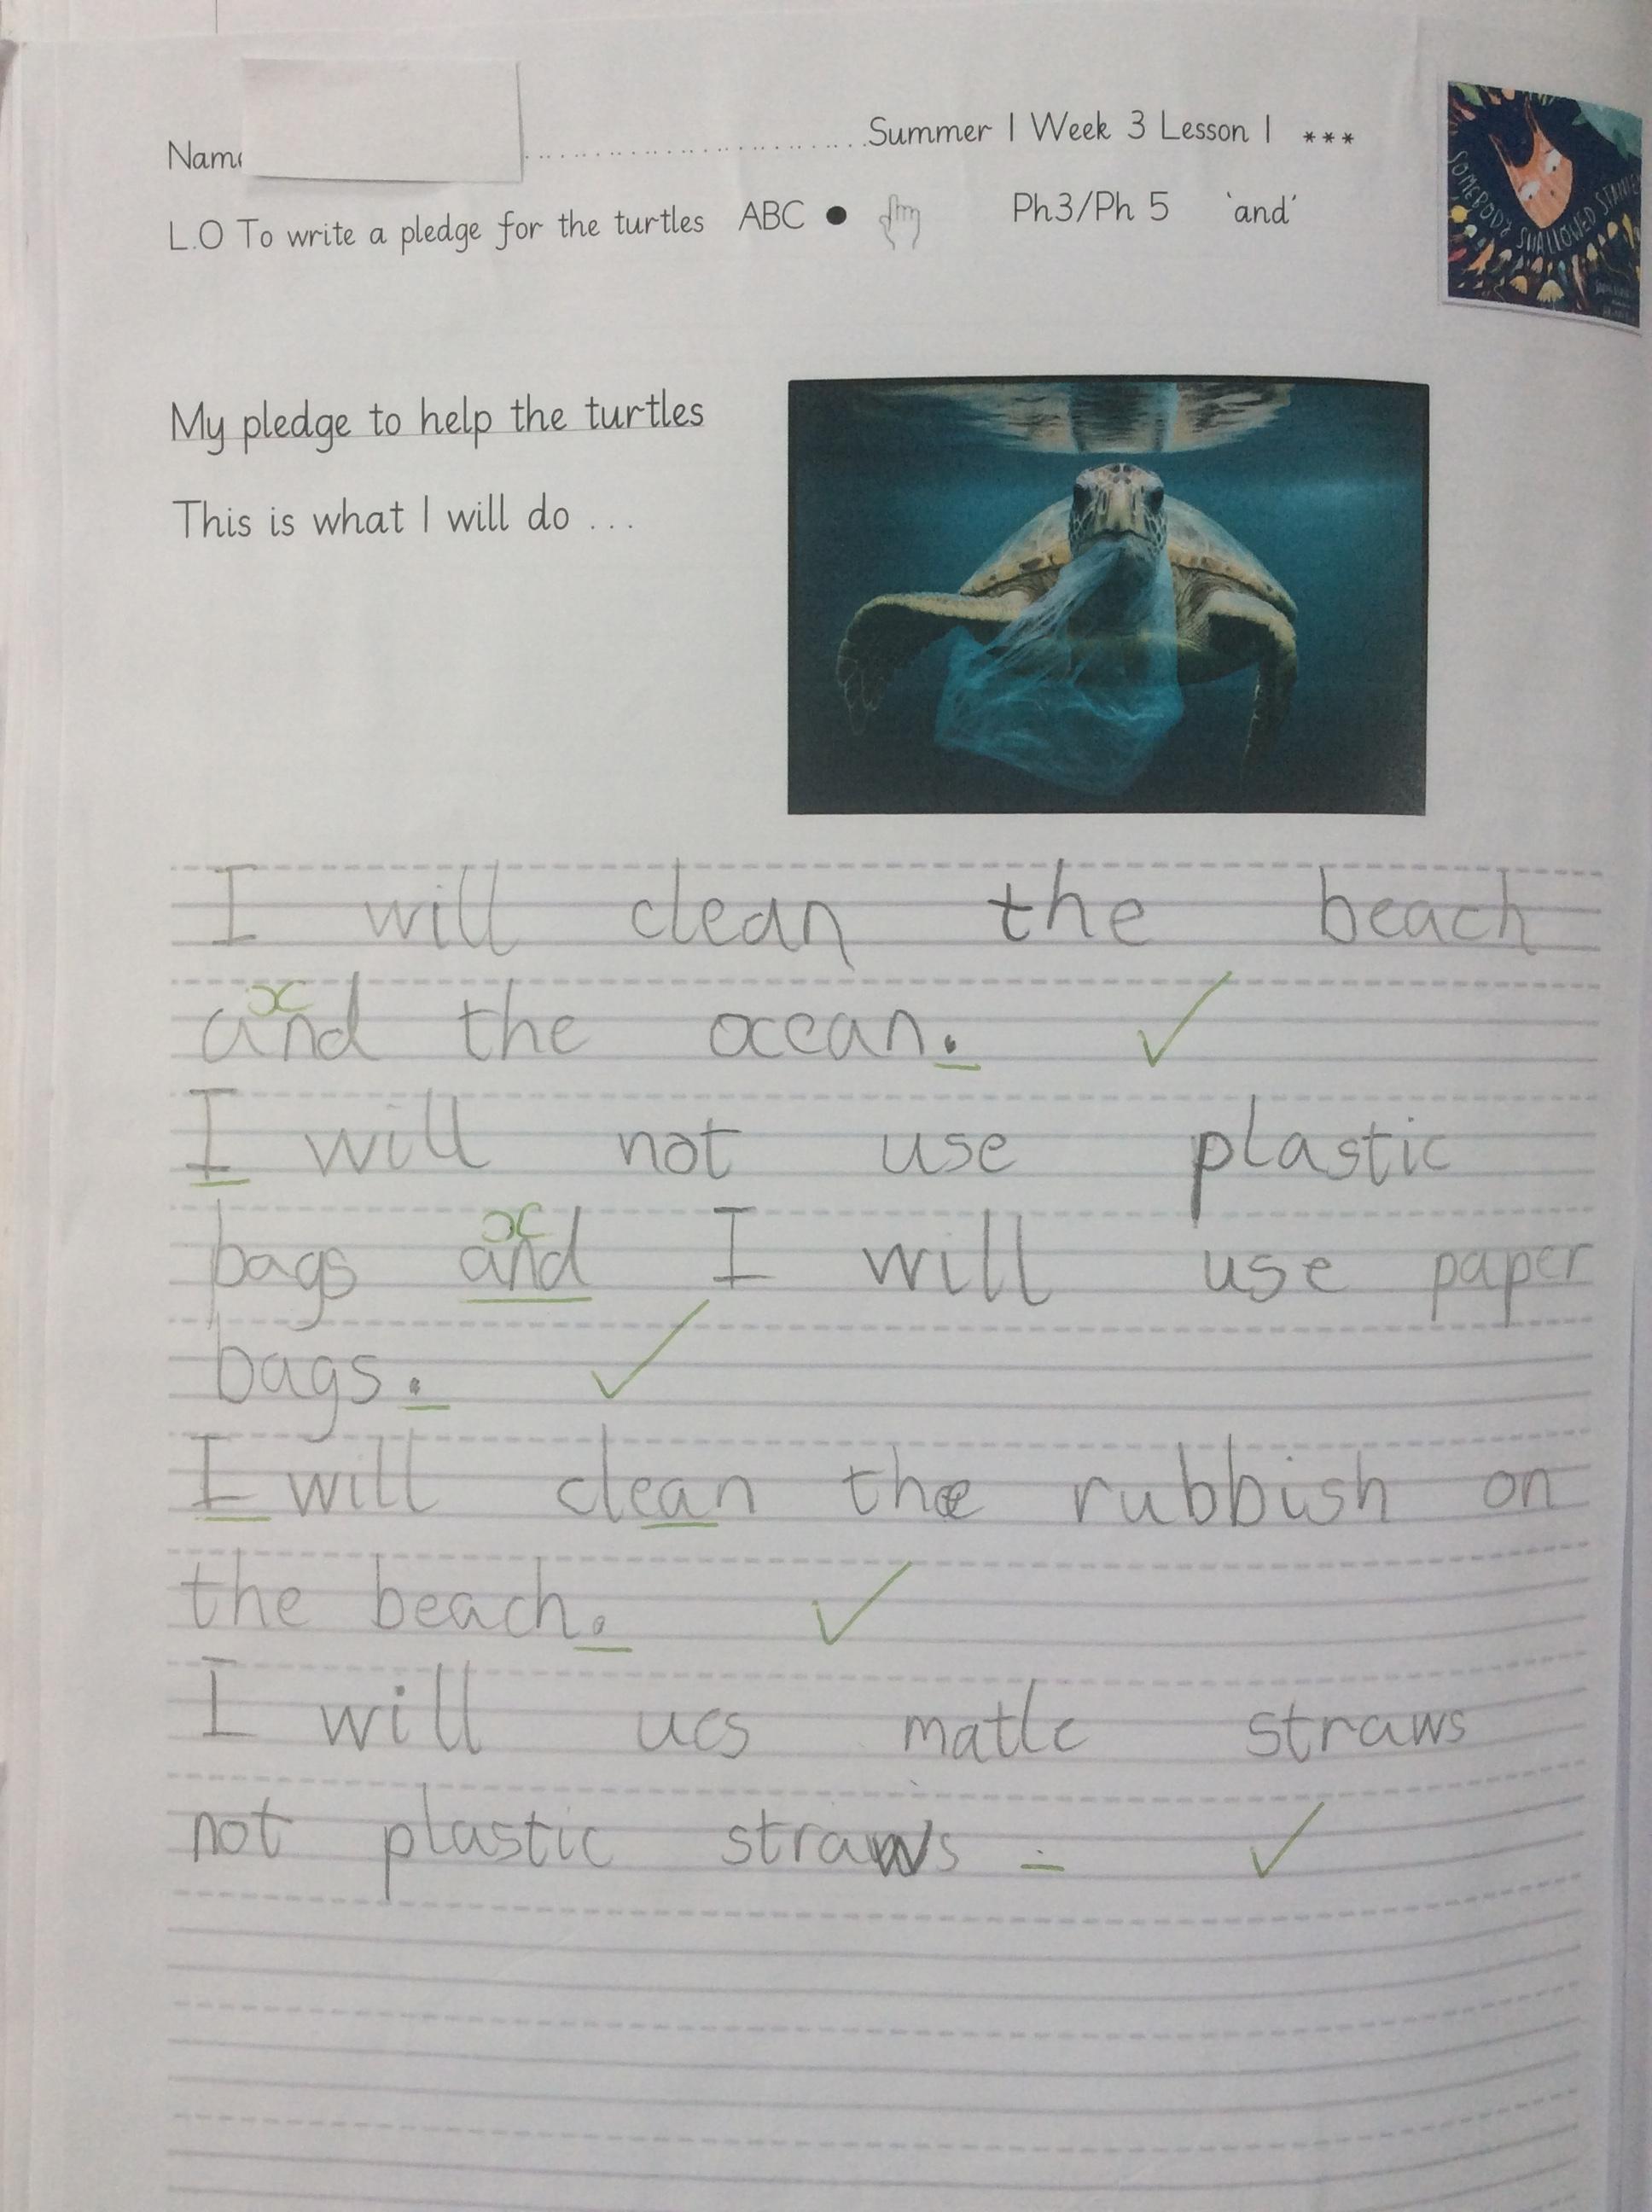 Name ........ Summer 1 Week 3 Lesson 1 ***
L.O To write a pledge for the turtles ABC ● Ph3/Ph 5 'and'
SOMEBODY SWALLOWED STANLEY
My pledge to help the turtles
This is what I will do ...
I will clean the beach
and the ocean.
I will not use plastic
bags and I will use paper
bags.
I will clean the rubbish on
the beach.
I will ues matle straws
not plastic straws.